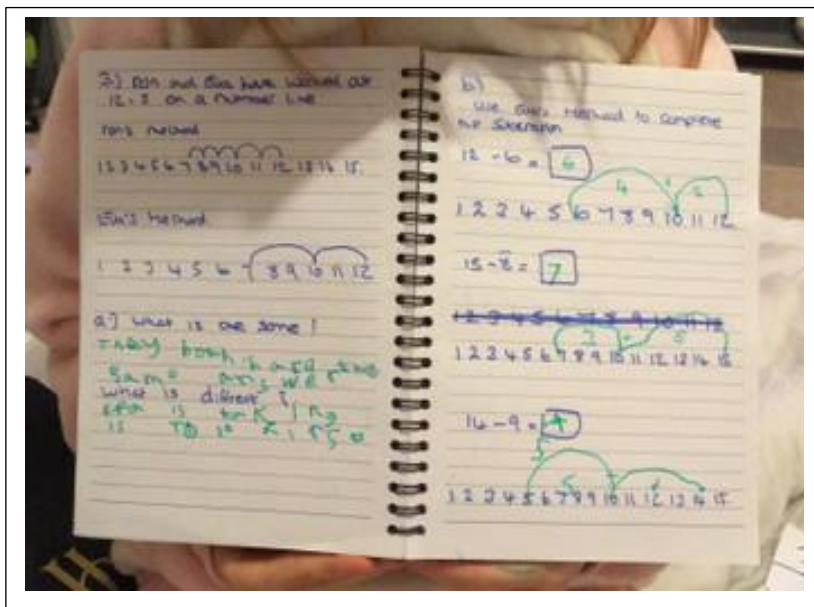 2) Ron and Eva have worked out
12 - 5 on a number line
Ron's method
1 2 3 4 5 6 7 8 9 10 11 12 13 14 15
Eva's method
1 2 3 4 5 6 7 8 9 10 11 12
a) what is the same?
They both have the
same answer
what is different?
Eva is making
is to 10 first
b)
Use Eva's method to complete
the subtraction
12 - 6 = 6
4 2
1 2 3 4 5 6 7 8 9 10 11 12
15 - 8 = 7
1 2 3 4 5 6 7 8 9 10 11 12
3 5
1 2 3 4 5 6 7 8 9 10 11 12 13 14 15
14 - 9 =
5
5
1 2 3 4 5 6 7 8 9 10 11 12 13 14 15